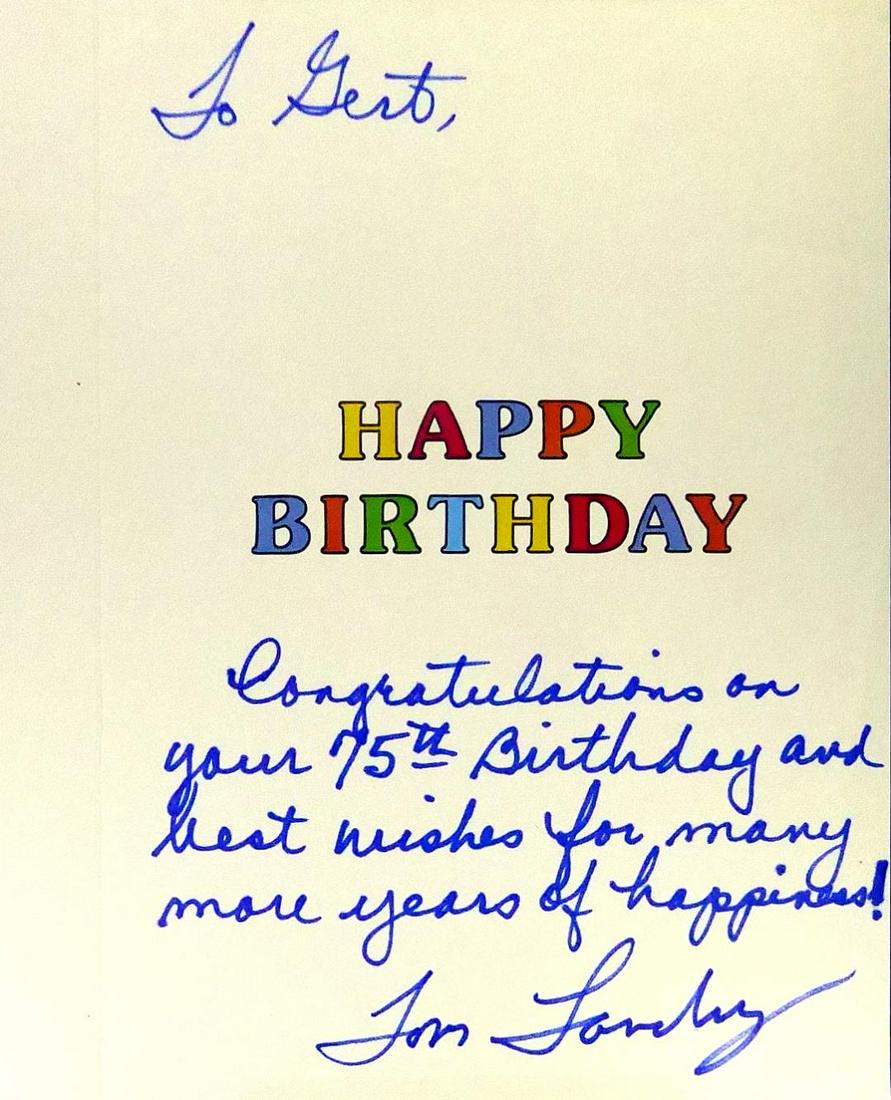 To Gert,
HAPPY
BIRTHDAY
Congratulations on
your 75th Birthday and
best wishes for many
more years of happiness!
Tom Landry